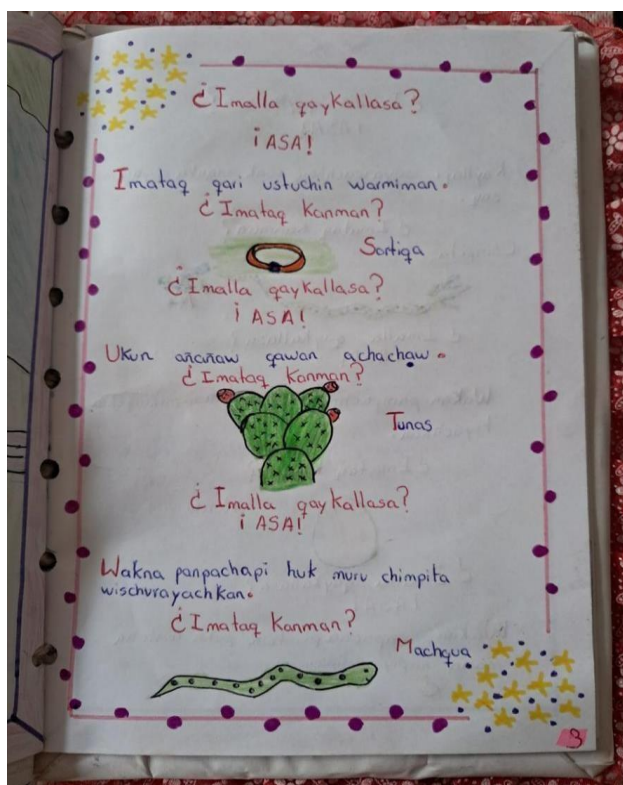 ¿Imalla qaykallasa?
¡ASA!
Imataq qari ustuchin warmiman.
¿Imataq Kanman?
Sortiqa
¿Imalla qaykallasa?
¡ASA!
Ukun añañaw qawan achachaw.
¿Imataq Kanman?
Tunas
¿Imalla qaykallasa?
¡ASA!
Wakna panpachapi huk muru chimpita
wischurayachkan.
¿Imataq Kanman?
Machqua
3